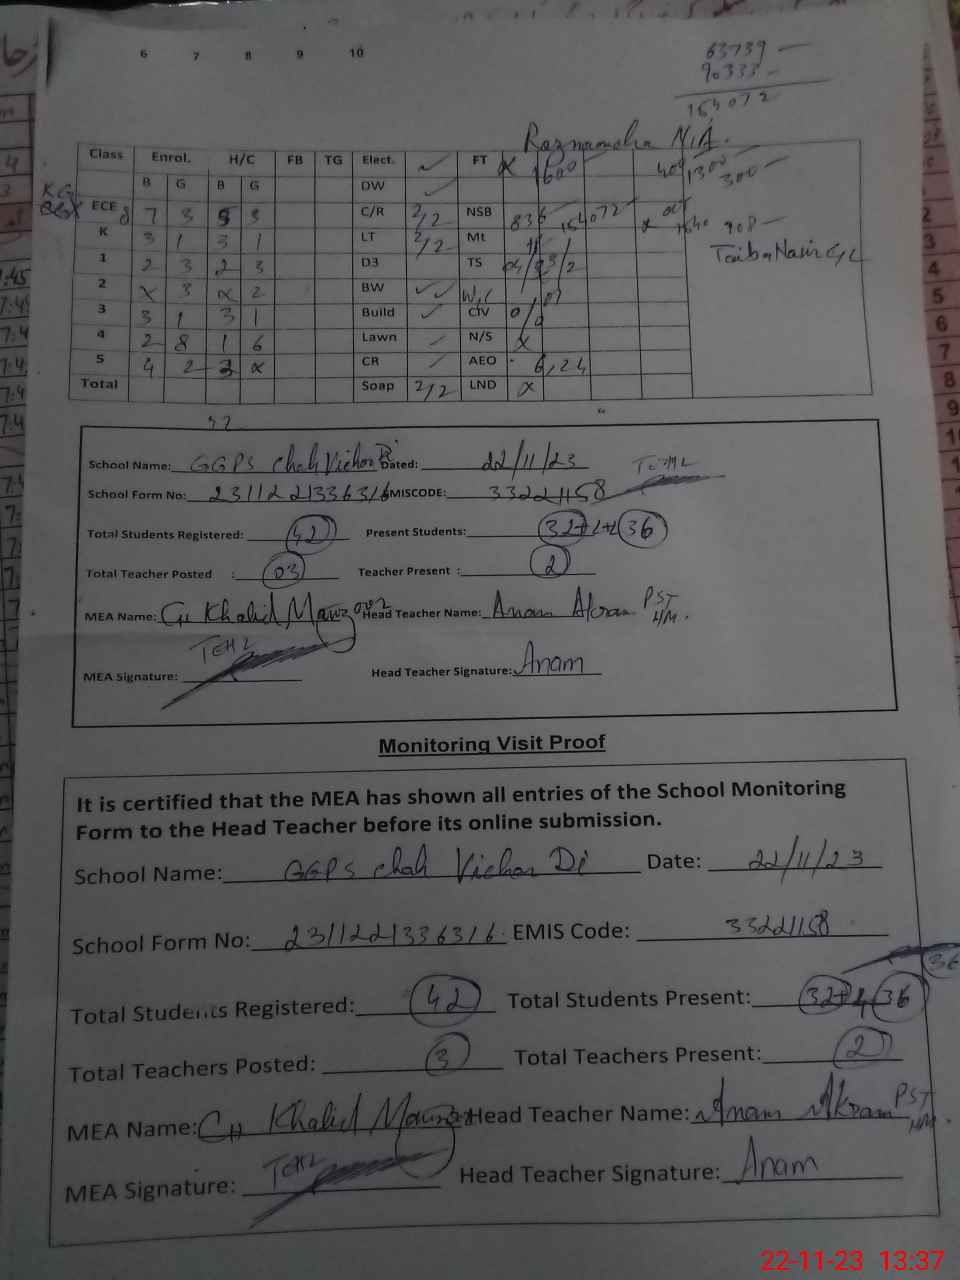 6 7 8 9 10
63739 —
90333 —
154072
Roznamcha N.A.
Class Enrol. H/C FB TG Elect. ✓ FT x 1600 400 1300 300
B G B G DW ✓
KG
ECE 8 7 3 5 3 C/R 2/2 NSB 836 154072 908 —
K 3 1 3 1 LT 2/2 Mt
Taiba Nasir
1 2 3 2 3 D3 TS
2 x 3 x 2 BW ✓✓ W/C
3 3 1 3 1 Build ✓ CIV 0/0
4 2 8 1 6 Lawn N/S x
5 4 2 3 x CR AEO 6,24
Total Soap 2/2 LND x
School Name: GGPS Chah Vichor Di Dated: 22/11/23
School Form No: 2311221336316 EMISCODE: 33221158
Total Students Registered: 42 Present Students: 32+4 36
Total Teacher Posted : 03 Teacher Present : 2
MEA Name: Ch Khalid Manzoor Head Teacher Name: Anam Akram PST
H/M.
MEA Signature: Head Teacher Signature: Anam
Monitoring Visit Proof
It is certified that the MEA has shown all entries of the School Monitoring
Form to the Head Teacher before its online submission.
School Name: GGPS Chah Vichor Di Date: 22/11/23
School Form No: 2311221336316 EMIS Code: 33221158
36
Total Students Registered: 42 Total Students Present: 32+4 36
Total Teachers Posted: 3 Total Teachers Present: 2
MEA Name: Ch Khalid Manzoor Head Teacher Name: Anam Akram PST
H/M.
MEA Signature: Head Teacher Signature: Anam
22-11-23 13:37